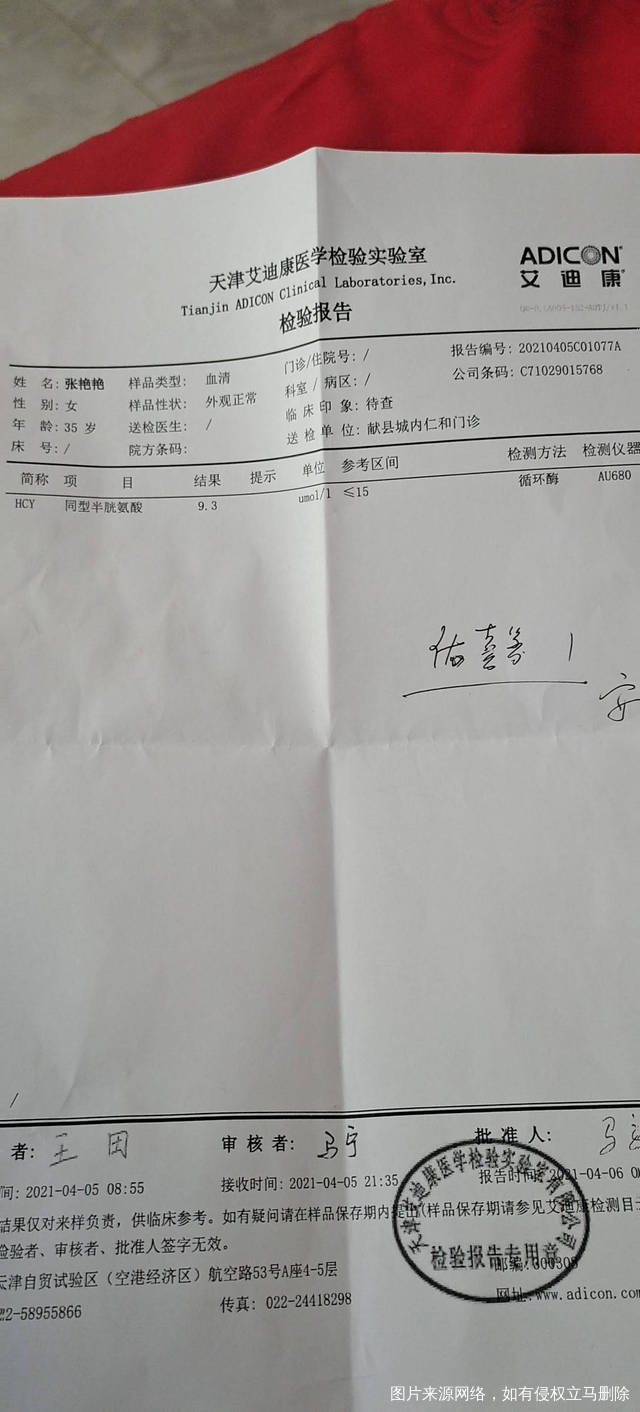 天津艾迪康医学检验实验室
Tianjin ADICON Clinical Laboratories,Inc.
检验报告
ADICON
艾迪康
姓 名: 张艳艳 样品类型: 血清 门诊/住院号: / 报告编号: 20210405C01077A
性 别: 女 样品性状: 外观正常 科室 / 病区: / 公司条码: C71029015768
年 龄: 35 岁 送检医生: / 临床印象: 待查
床 号: / 院方条码: 送检单位: 献县城内仁和门诊
简称 项 目 结果 提示 单位 参考区间 检测方法 检测仪器
HCY 同型半胱氨酸 9.3 umol/l ≤15 循环酶 AU680
1
安
/
者: 王 审核者: 马宇 批准人: 马
间: 2021-04-05 08:55 接收时间: 2021-04-05 21:35 报告时间: 2021-04-06
结果仅对来样负责，供临床参考。如有疑问请在样品保存期内提出(样品保存期请参见艾迪康检测目
检验者、审核者、批准人签字无效。
天津自贸试验区（空港经济区）航空路53号A座4-5层 邮编:300308
22-58955866 传真: 022-24418298 网址:www.adicon.com
天津艾迪康医学检验实验室有限公司
检验报告专用章
图片来源网络，如有侵权立马删除